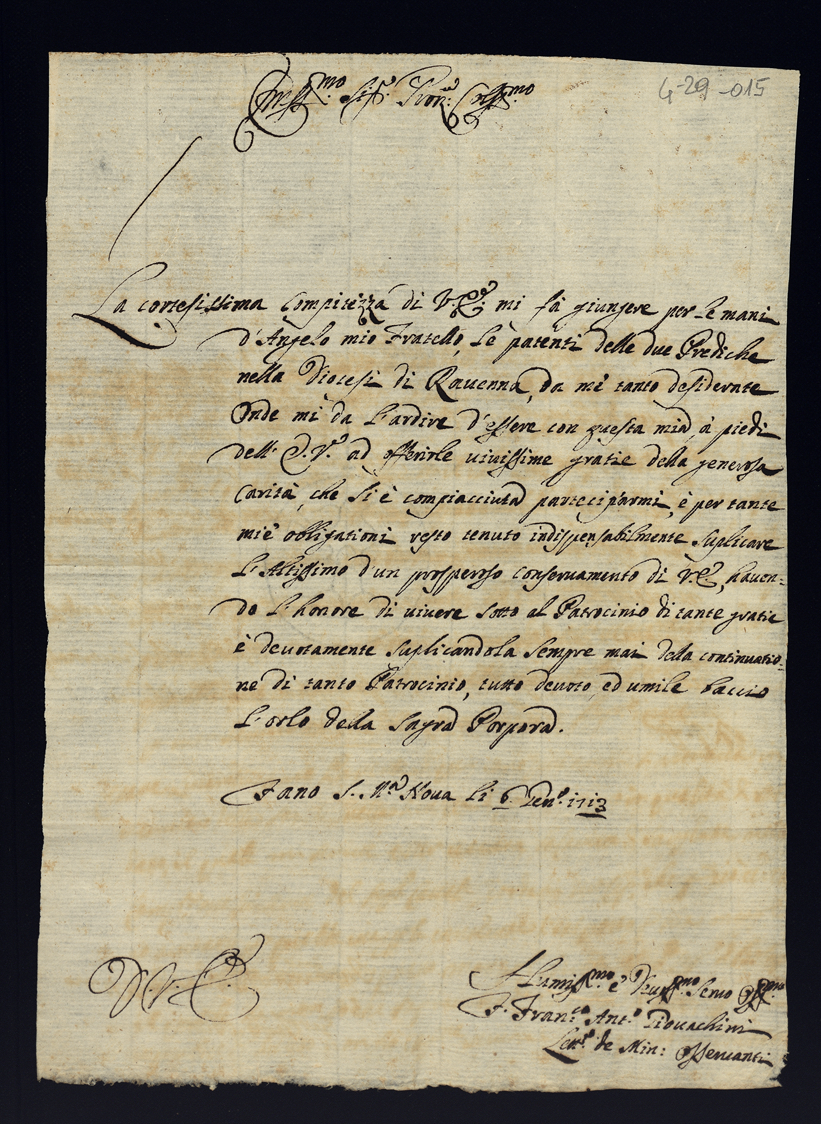 4-29-015
Em.mo Sig.r Pron: Col.mo
La cortesissima Compitezza di V. E. mi fà giungere per le mani
d'Angelo mio Fratello, le patenti delle due Prediche
nella Diocesi di Ravenna, da me tanto desiderate
Onde mi da l'ardire d'essere con questa mia à piedi
dell' E. V. ad offerirle vivissime gratie della generosa
Carità, che si è compiacciuta parteciparmi, è per tante
mie obligationi resto tenuto indispensabilmente suplicare
L'Altissimo d'un prosperoso conservamento di V. E., haven=
do l'honore di vivere sotto al Patrocinio di tante gratie
è devotamente suplicandola sempre mai della continuatio=
ne di tanto Patrocinio, tutto devoto, ed umile baccio
L'orlo della Sagra Porpora.
Fano S. M.a Nova li 6. Gen.o 1713
D. V. E.
Humiss.mo è Devss.mo Servo Oss.mo
F. Fran.co Ant.o Piovachini
de Min: Osservanti